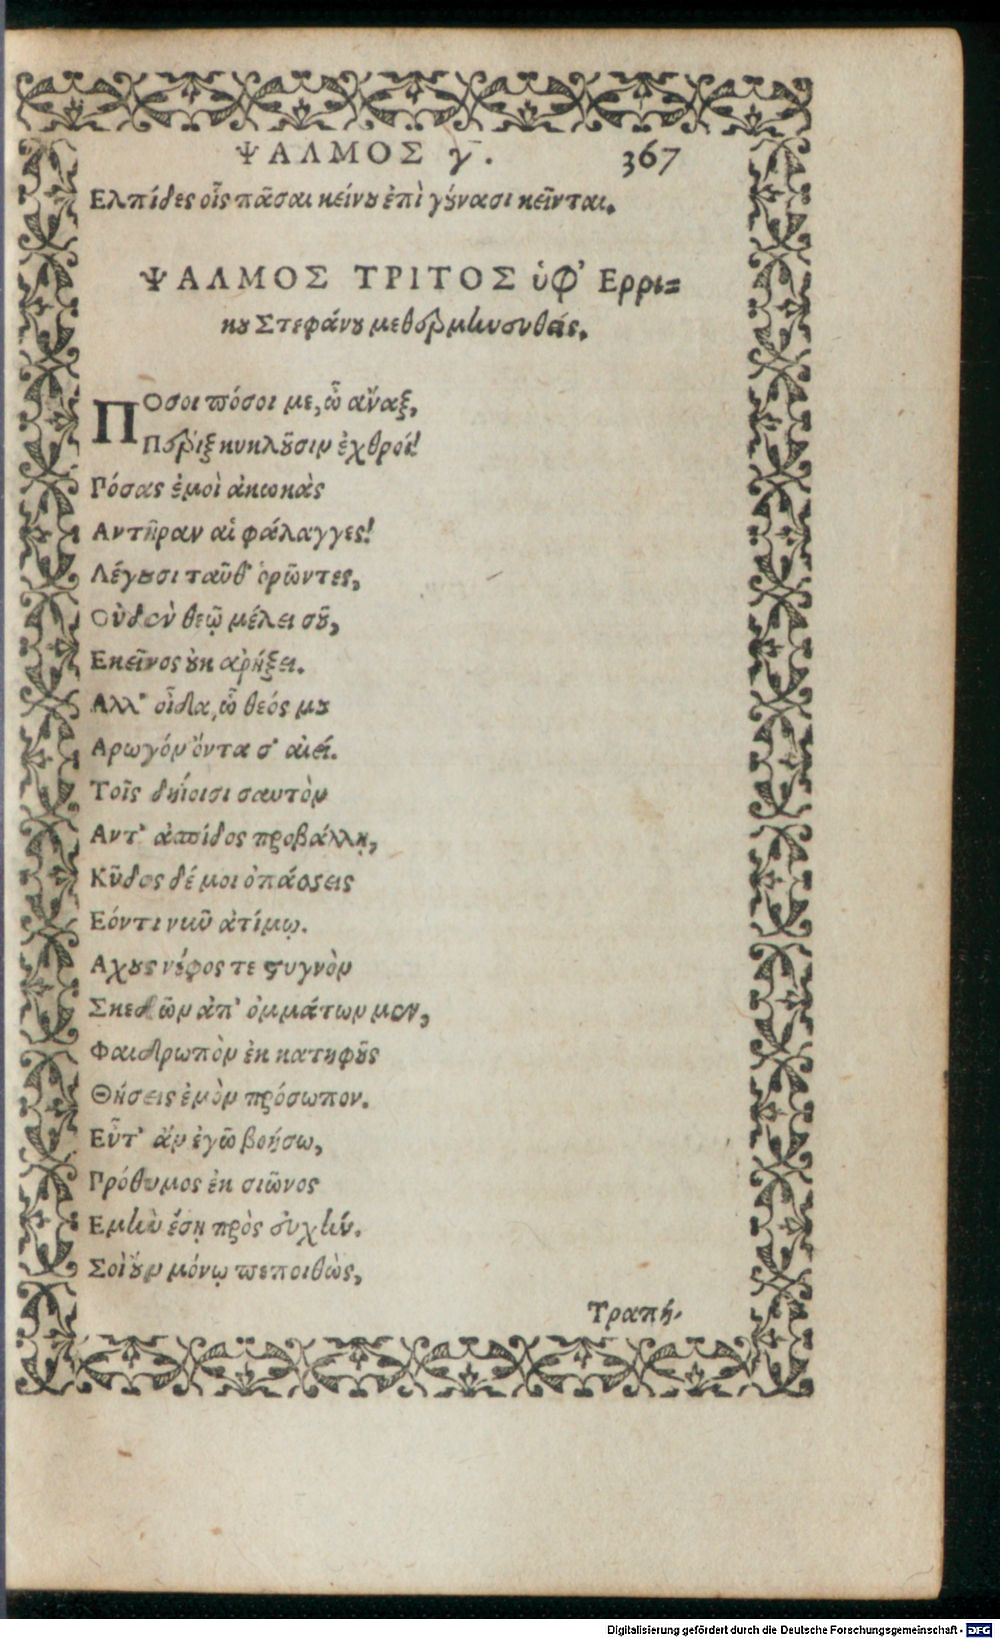 ΨΑΛΜΟΣ γ. 367
Ελπίδες οἷς πᾶσαι κείνου ἐπὶ γούνασι κεῖνται.
ΨΑΛΜΟΣ ΤΡΙΤΟΣ ὑφ' Ερρι=
κου Στεφάνου μεθερμηνευθείς.
ΠΟσοι πόσοι με, ὦ ἄναξ,
Πέριξ κυκλοῦσιν ἐχθροί!
Πόσας ἐμοὶ ἀκωκὰς
Αντῆραν αἱ φάλαγγες!
Λέγουσι ταῦθ' ὁρῶντες,
Οὐδὲν θεῷ μέλει σοῦ,
Εκεῖνος οὐκ ἀρήξει.
Αλλ' οἶδα, ὦ θεός μου
Αρωγὸν ὄντα σ' αἰεί.
Τοῖς δηΐοισι σαυτὸν
Αντ' ἀσπίδος προβάλλῃ,
Κῦδος δέ μοι ὀπάσσεις
Εόντι νῦν ἀτίμῳ.
Αχους νέφος τε στυγνὸν
Σκεδῶν ἀπ' ὀμμάτων μεν,
Φαιδρωπὸν ἐκ κατηφοῦς
Θήσεις ἐμὸν πρόσωπον.
Εὖτ' ἂν ἐγὼ βοήσω,
Πρόθυμος ἐκ σιῶνος
Εμὴν ἔσῃ πρὸς εὐχήν.
Σοὶ οὖν μόνῳ πεποιθὼς,
Τραπή-
Digitalisierung gefördert durch die Deutsche Forschungsgemeinschaft - DFG